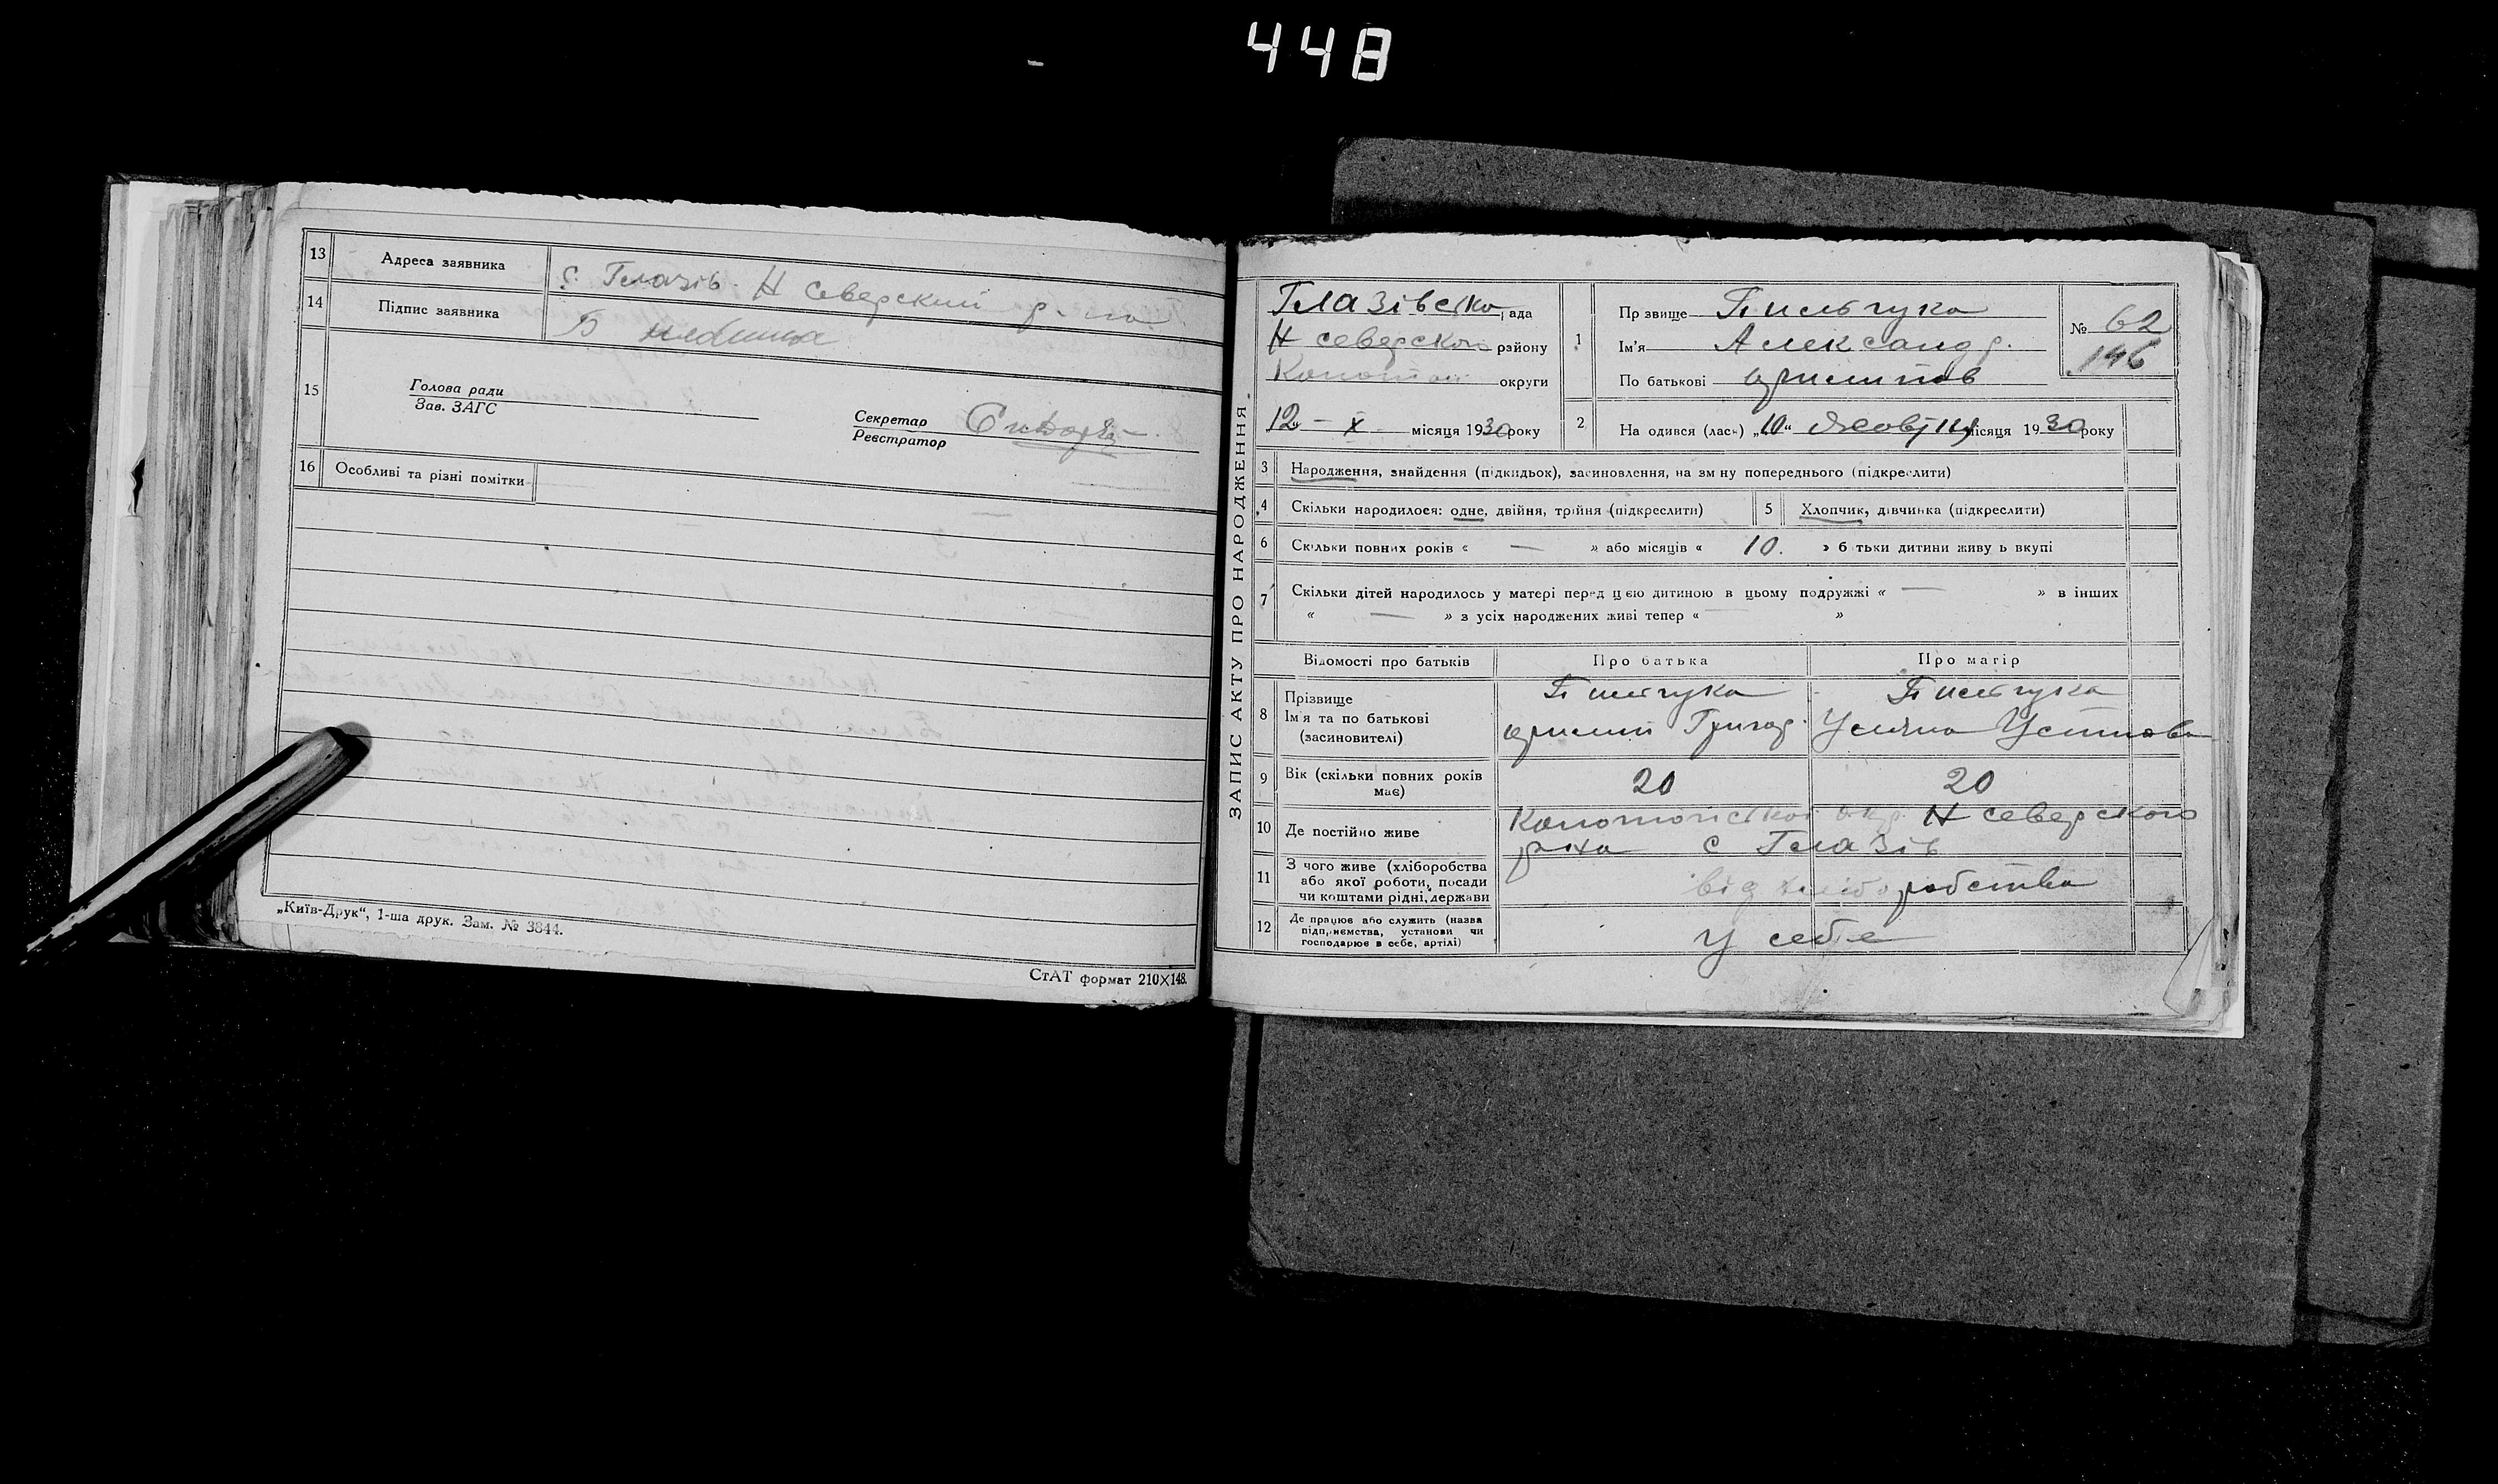 448
13 Адреса заявника с. Глазів. Н Северский р-на
14 Підпис заявника Б
15 Голова ради
Зав. ЗАГС
Секретар
Реєстратор
16 Особливі та різні помітки
„Київ-Друк“, 1-ша друк. Зам. № 3844.
СтАТ формат 210Х148.
ЗАПИС АКТУ ПРО НАРОДЖЕННЯ
Глазівска рада
Н северского району
Конотоп округи
12 - X - місяця 1930 року
1 Прзвище Пильгука
Ім'я Александр.
По батькові
№ 62
146
2 На одився (лась) „10“ Жовтня місяця 1930 року
3 Народження, знайдення (підкидьок), засиновлення, на зм ну попереднього (підкреслити)
4 Скільки народилося: одне, двійня, трійня (підкреслити) 5 Хлопчик, дівчинка (підкреслити)
6 Скільки повних років « — » або місяців « 10. » б тьки дитини живу ь вкупі
7 Скільки дітей народилось у матері перед цією дитиною в цьому подружжі « — » в інших
« — » з усіх народжених живі тепер « — »
Відомості про батьків Про батька Про матір
8 Прізвище Пильгука Пильгука
Ім'я та по батькові Григор. Устинова
(засиновителі)
9 Вік (скільки повних років має) 20 20
10 Де постійно живе Конотопської окр. Н северского
р-на с Глазів
11 З чого живе (хліборобства
або якої роботи, посади
чи коштами рідні, держави від хліборобства
12 Де працює або служить (назва
підприємства, установи чи
господарює в себе, артілі) у себе